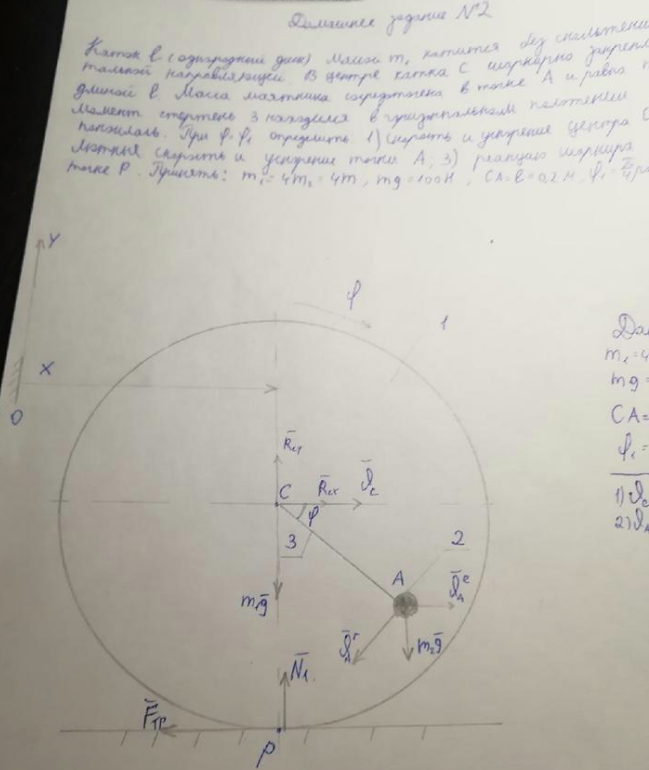 Домашнее задание №2
Каток 1 (однородный диск) массой m, катится без скольжения
тальной направляющей В центре катка С шарнирно закреплён
длиной l. Масса маятника сосредоточена в точке А и равна
момент стержень 3 находился в горизонтальном положении
При φ=φ1 определить: 1) скорость и ускорение центра
лютные скорость и ускорение точки А, 3) реакцию шарнира
точке P. Принять: m1=4m2=4m, mg=100H, CA=l=0,2м, φ1=π/4 ра
Y
φ
1
X
O
Дан
m1=4
mg=
CA=
φ1=
1) Vc
2) VA
Rcy
C
Rcx
Vc
φ
3
2
A
VAe
m1g
VAr
m2g
N1
Fтр
P